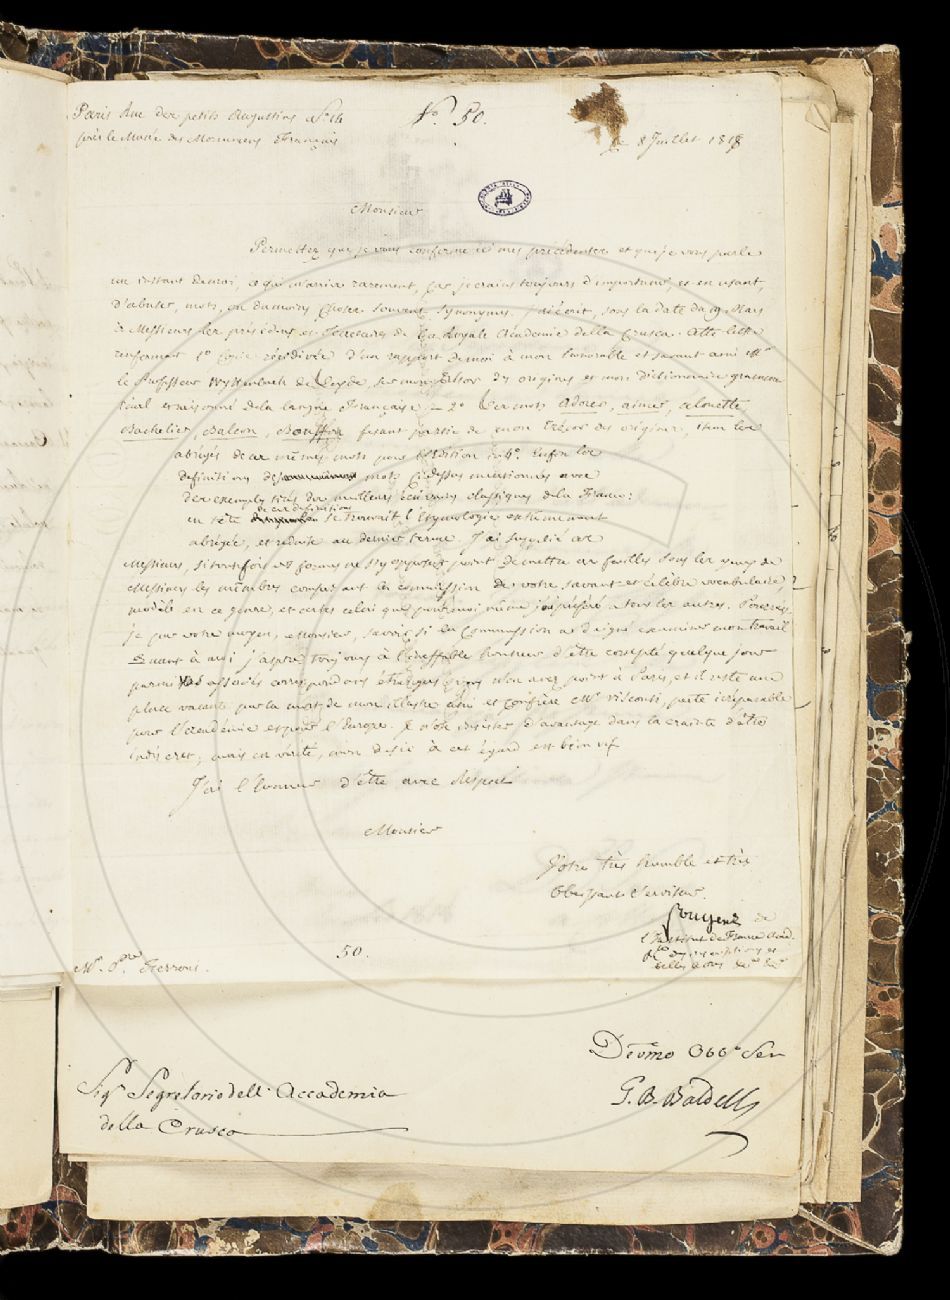 Paris Rue des petits Augustins
N.º 50.
près le Musée des Monumens Français
le 8 Juillet 1818
Monsieur
Permettez que je vous confirme ici mes précédentes et que je vous parle
un instant de moi, ce qui m'arrive rarement, car je crains toujours d'importuner et en usant,
d'abuser, mots, ou du moins choses souvent synonymes. J'ai écrit, sous la date du 19 Mars
à Messieurs les présidens et Secrétaires de la Royale Académie della Crusca. Cette lettre
renfermait 1º Copie d'un rapport de moi à mon honorable et savant ami Mr
le Professeur Wyttenbach de Leyde, sur mon Trésor des origines et mon dictionnaire gramma
tical et raisonné de la langue Française. 2º Les mots Adorer, aimer, alouette
Bachelier, Balcon, Bouffon faisant partie de mon Trésor des origines, item les
abrégés de ces mêmes mots pour l'Edition in 4º. Enfin les
définitions des mots ci dessus mentionnés avec
des exemples tirés des meilleurs écrivains classiques de la France:
en tête de ces définitions se trouvait l'Etymologie extrêmement
abrégée, et réduite au dernier terme. J'ai supplié ces
Messieurs, si toutefois vos formes ne s'y opposent point de mettre ces feuilles sous les yeux de
Messieurs les membres composant la commission de votre savant et célèbre vocabulaire,
modèle en ce genre, et certes celui que pour moi même j'ai préféré à tous les autres. Pourrai
je par votre moyen, Monsieur, savoir si la Commission a daigné examiner mon travail
Quant à moi j'aspire toujours à l'ineffable honneur d'être compté quelque jour
parmi vos associés correspondans étrangers vous n'en avez point à Paris, et il reste une
place vacante par la mort de mon illustre ami et confrère Mr Visconti, perte irréparable
pour l'académie et pour l'Europe. Je n'ose insister davantage dans la crainte d'être
indiscret; mais en vérité, mon désir à cet égard est bien vif
J'ai l'honneur d'être avec respect
Monsieur
Votre très humble et très
Obéissant Serviteur
Pougens de
l'Institut de France Acad.
des inscriptions et
belles lettres
50.
Mr. Ferroni.
Devmo Obbo Ser
G. B. Baldelli
Sigr Segretario dell' Accademia
della Crusca